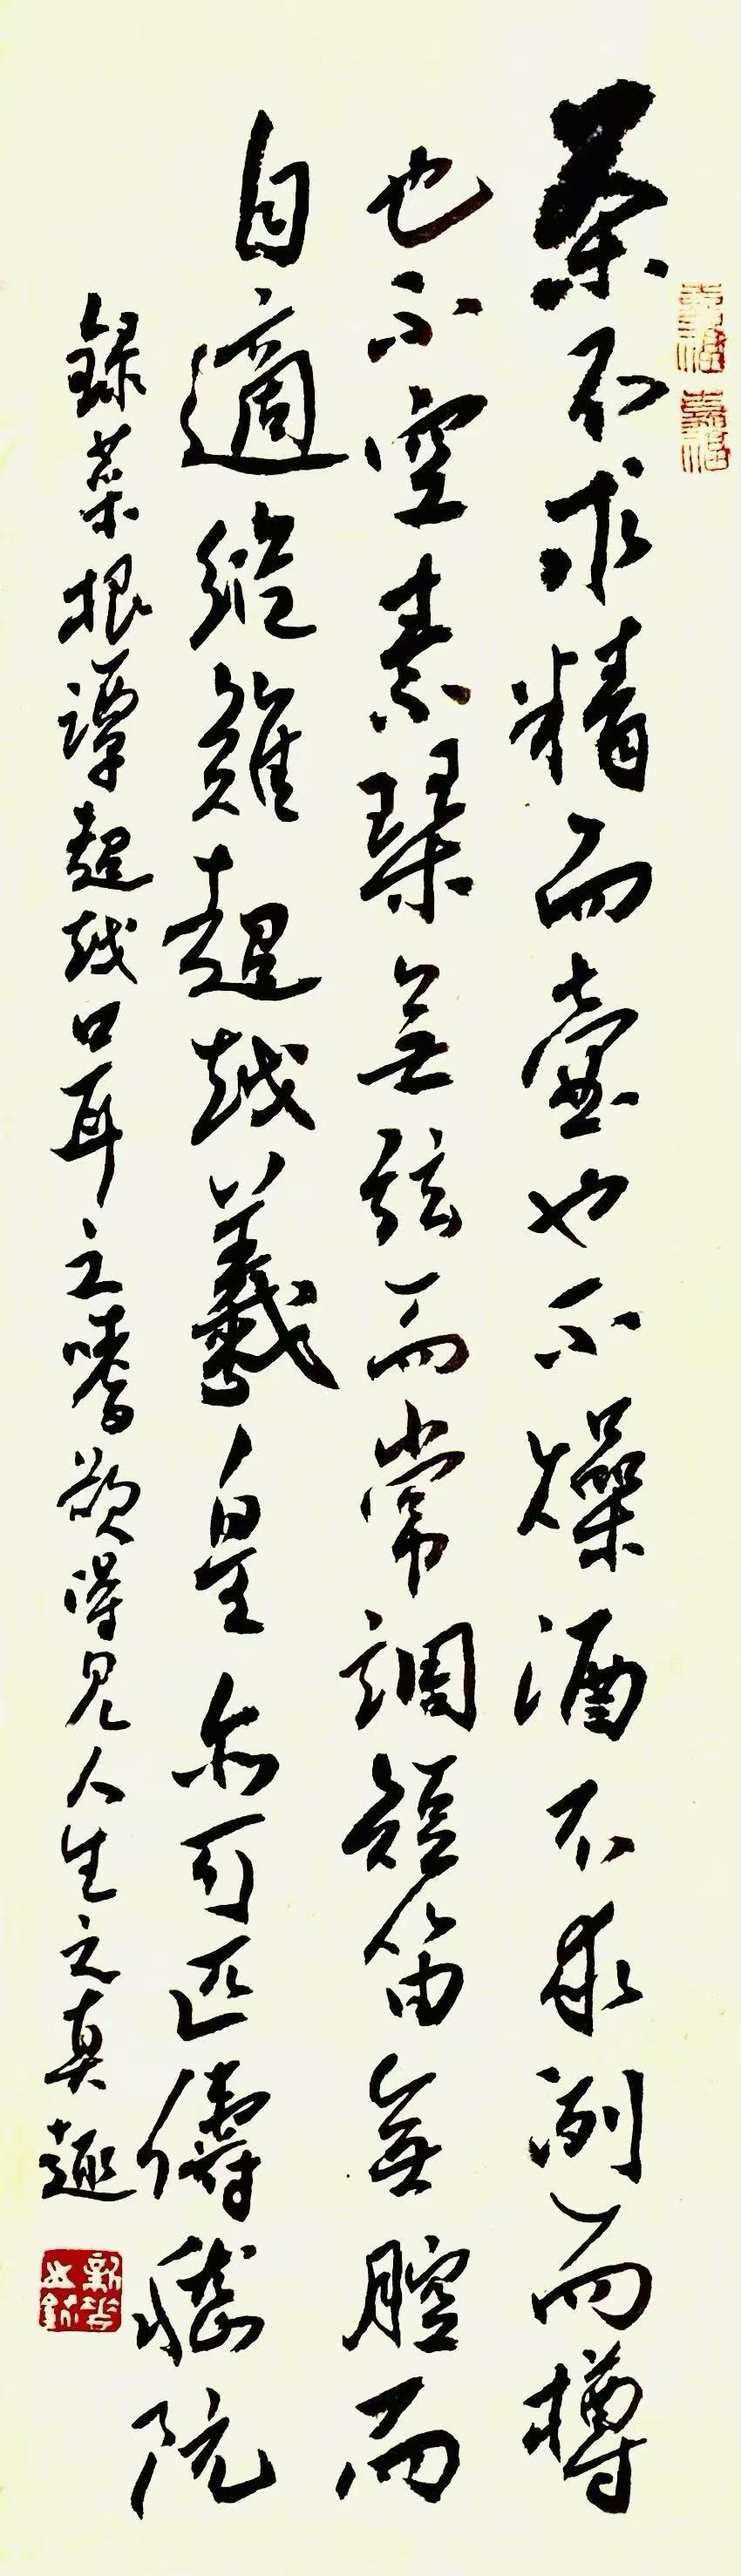 茶不求精而壶也不燥酒不求洌而樽
也不空素琴無弦而常調短笛無腔而
自適縱難超越羲皇亦可匹儔嵇阮
録菜根譚超越口耳之嗜欲得見人生之真趣